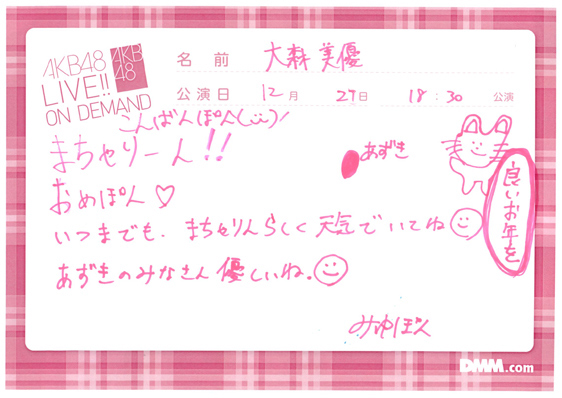 AKB48
LIVE!!
ON DEMAND
AKB
48
名前 大森美優
公演日 12月 27日 18:30 公演
こんばんぽん(¨)/
まちゃりーん!!
あずき
おめぽん♡
いつまでも、まちゃりんらしく天気でいてね
あずきのみなさん優しいね。
良いお年を
みゆぽん
DMM.com